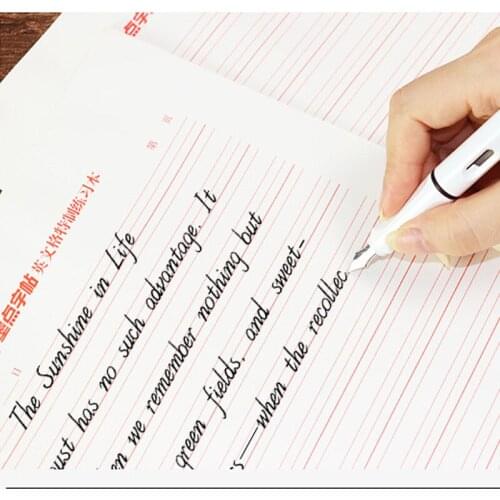 第 页
墨点字帖 英文格特制练习本
The Sunshine in Life
ust has no such advantage. It
en we remember nothing but
green fields. and sweet-
s—when the recollec